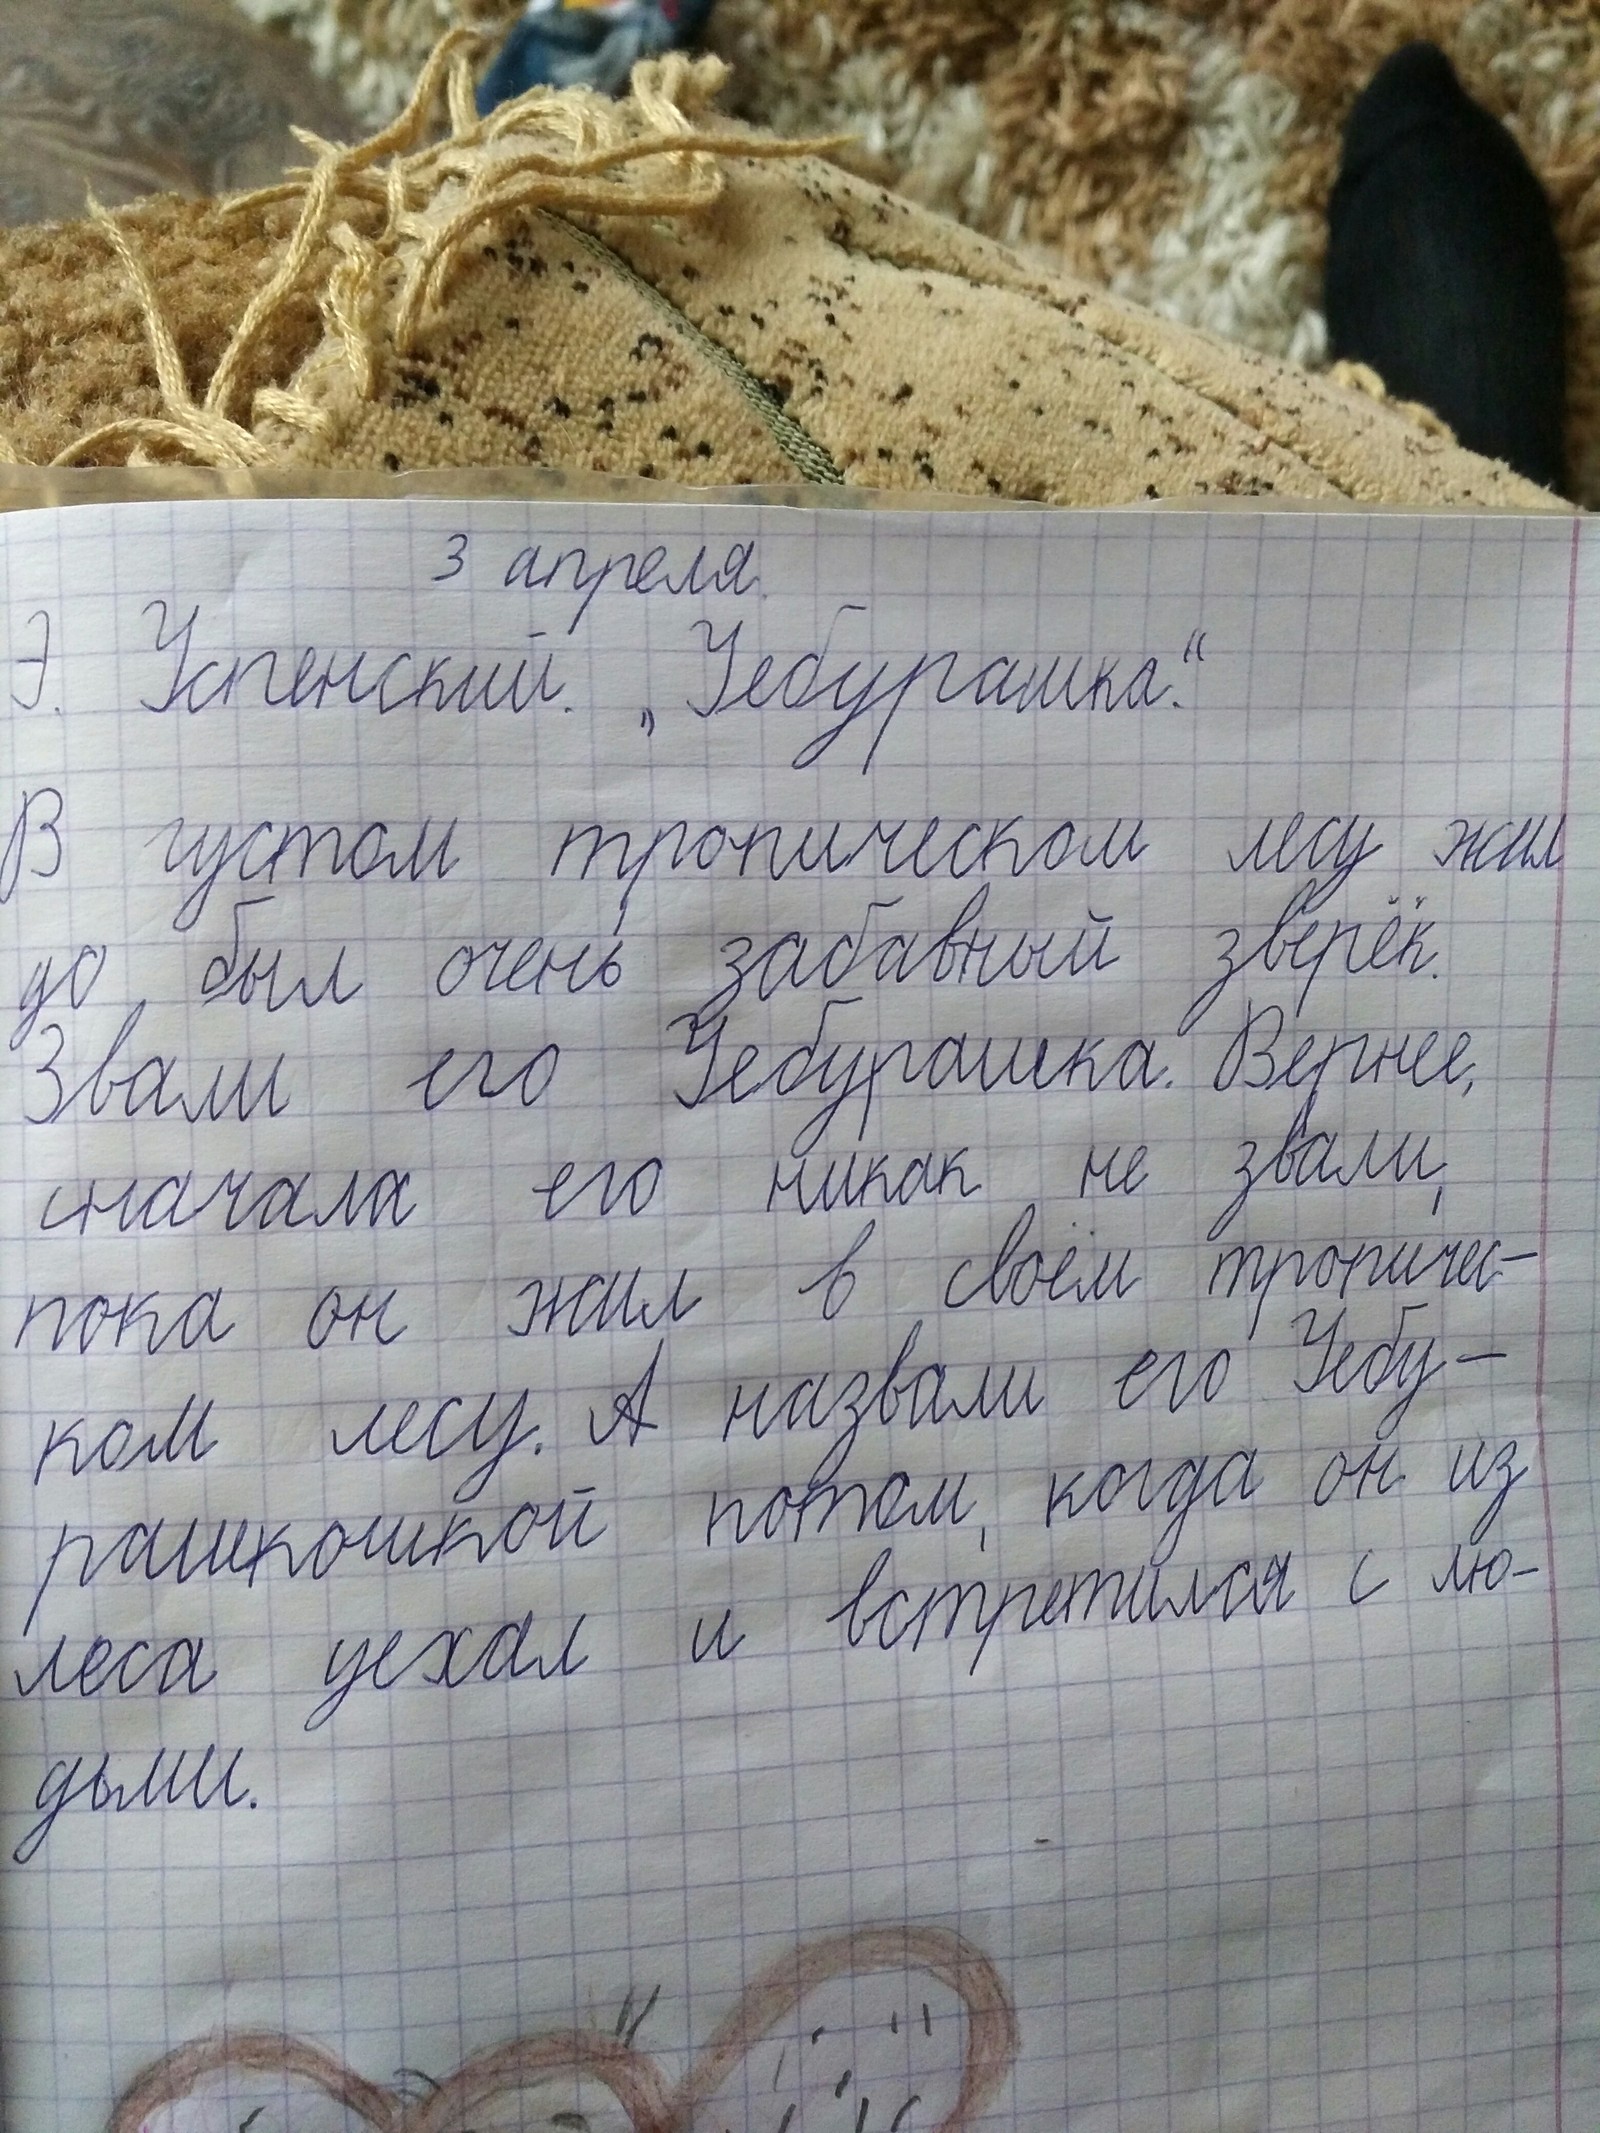 3 апреля.
Э. Успенский. „Чебурашка."
В густом тропическом лесу жил
до был очень забавный зверёк.
Звали его Чебурашка. Вернее,
сначала его никак не звали,
пока он жил в своём тропичес-
ком лесу. А назвали его Чебу-
рашкошкой потом, когда он из
леса уехал и встретился с лю-
дьми.